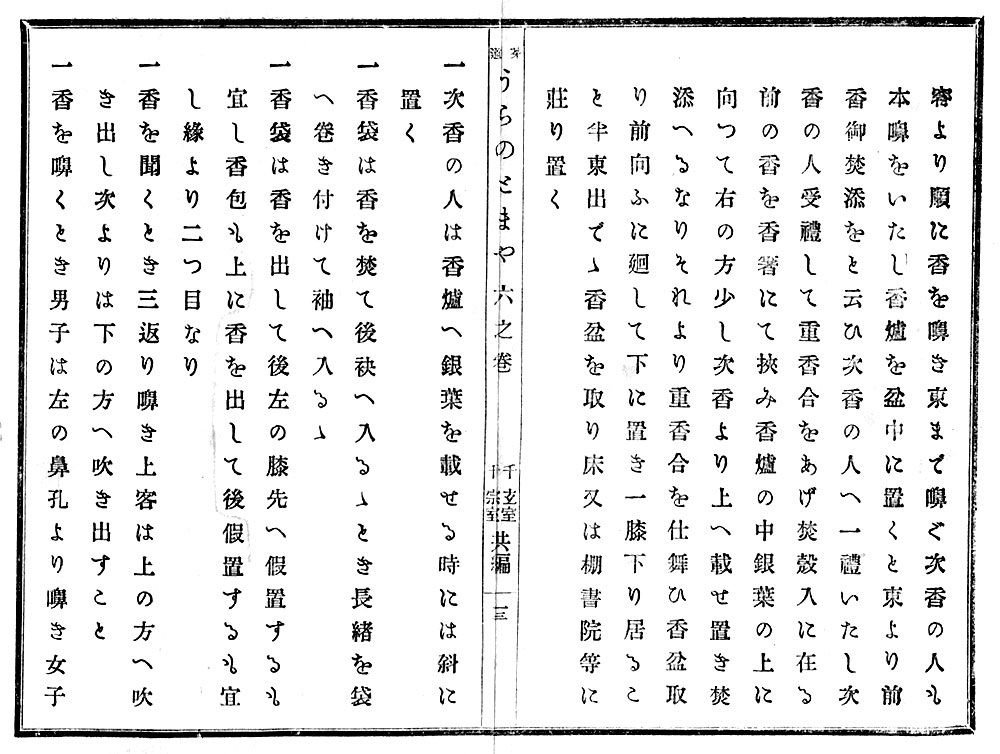 客より順に香を嗅き東まで嗅ぐ次香の人も
本嗅をいたし香爐を盆中に置くと東より前
香御焚添をと云ひ次香の人へ一禮いたし次
香の人受禮して重香合をあげ焚殼入に在る
前の香を香箸にて挾み香爐の中銀葉の上に
向つて右の方少し次香より上へ載せ置き焚
添へるなりそれより重香合を仕舞ひ香盆取
り前向ふに廻して下に置き一膝下り居るこ
と半東出でゝ香盆を取り床又は棚書院等に
莊り置く
うらのとまや六之卷
千玄室
千宗室
共編
三
一次香の人は香爐へ銀葉を載せる時には斜に
置く
一香袋は香を焚て後袂へ入るゝとき長緖を袋
へ卷き付けて袖へ入るゝ
一香袋は香を出して後左の膝先へ假置するも
宜し香包も上に香を出して後假置するも宜
し緣より二つ目なり
一香を聞くとき三返り嗅き上客は上の方へ吹
き出し次よりは下の方へ吹き出すこと
一香を嗅くとき男子は左の鼻孔より嗅き女子